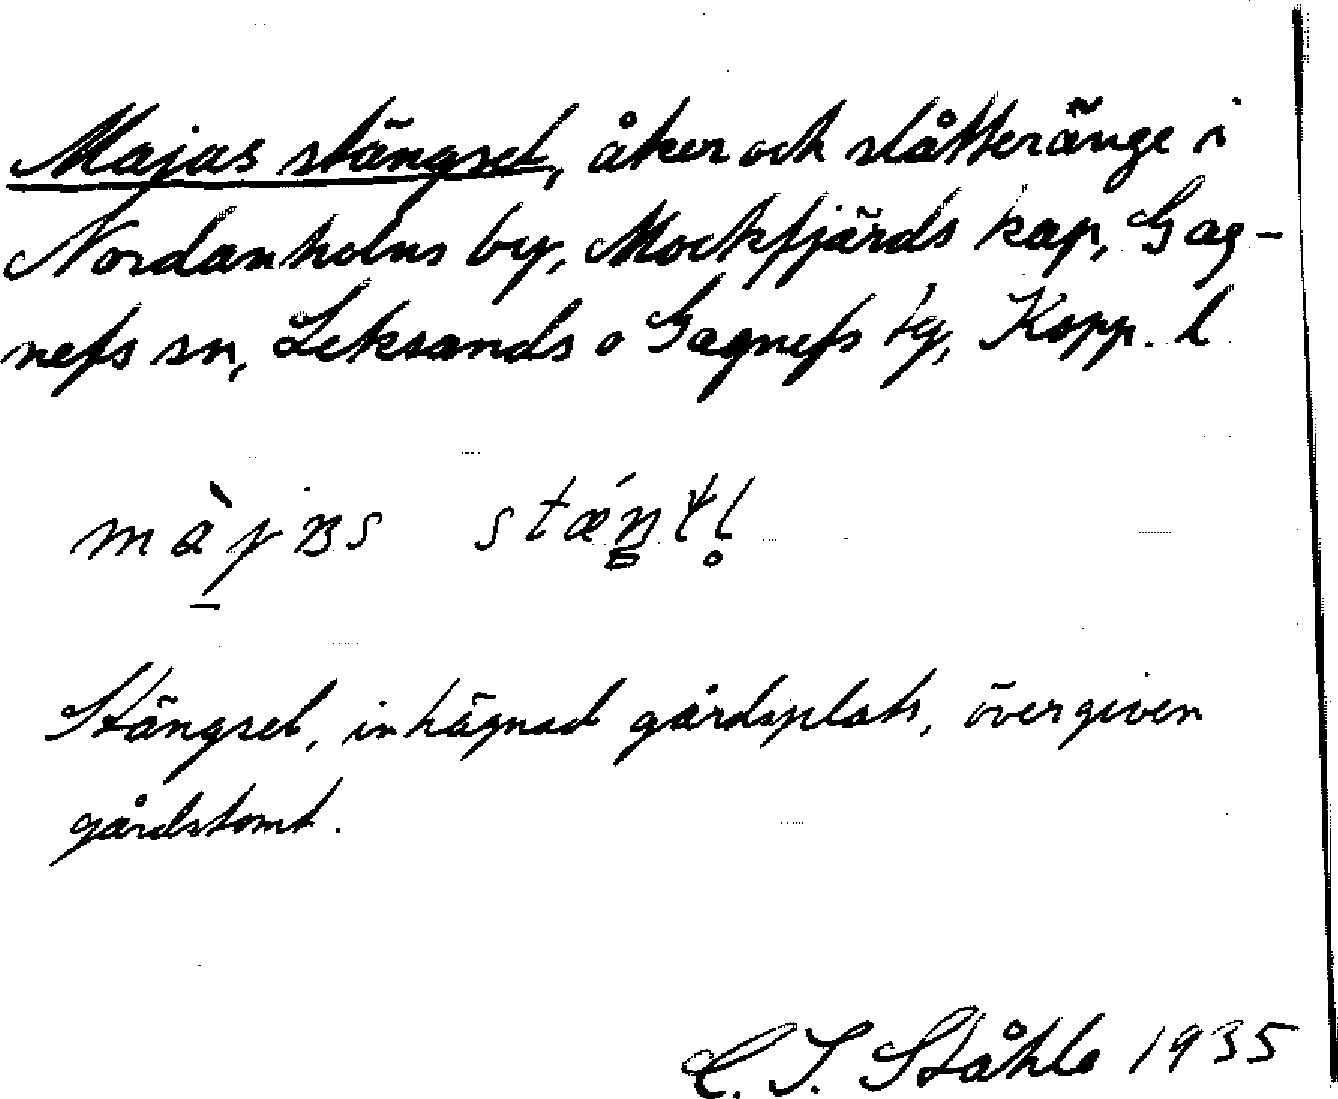 Majas stängsel, åker och slåtteränge i
Nordanholns by, Mockfjärds kap, Gag-
nefs sn, Leksands o Gagnefs tg, Kopp. l
Stängsel, inhägnad gårdsplats, övergiven
gårdstomt.
C. I. Ståhle 1935